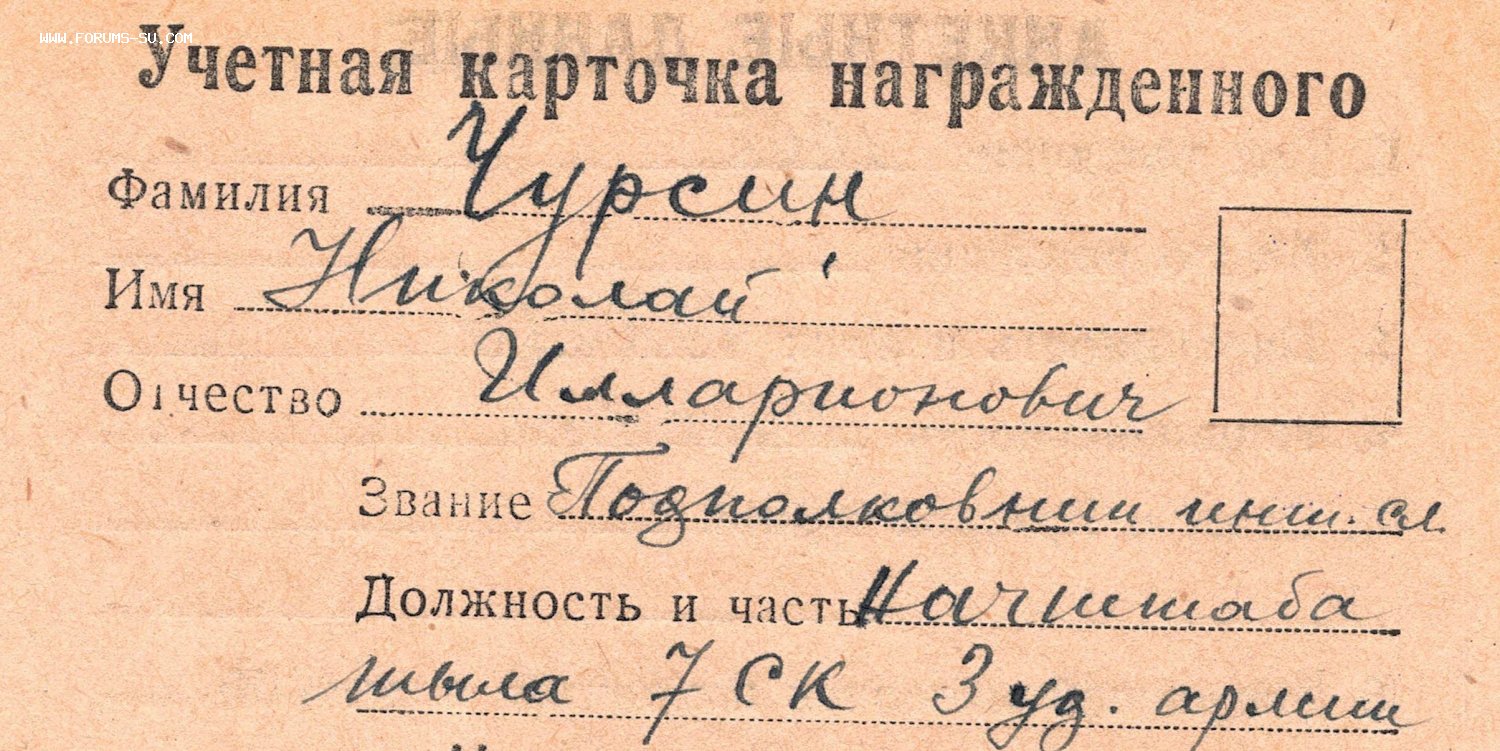 www.forums-su.com
Учетная карточка награжденного
Фамилия Чурсин
Имя Николай
Отчество Илларионович
Звание Подполковник инт. сл.
Должность и часть Начштаба
тыла 7 СК 3 уд. армии